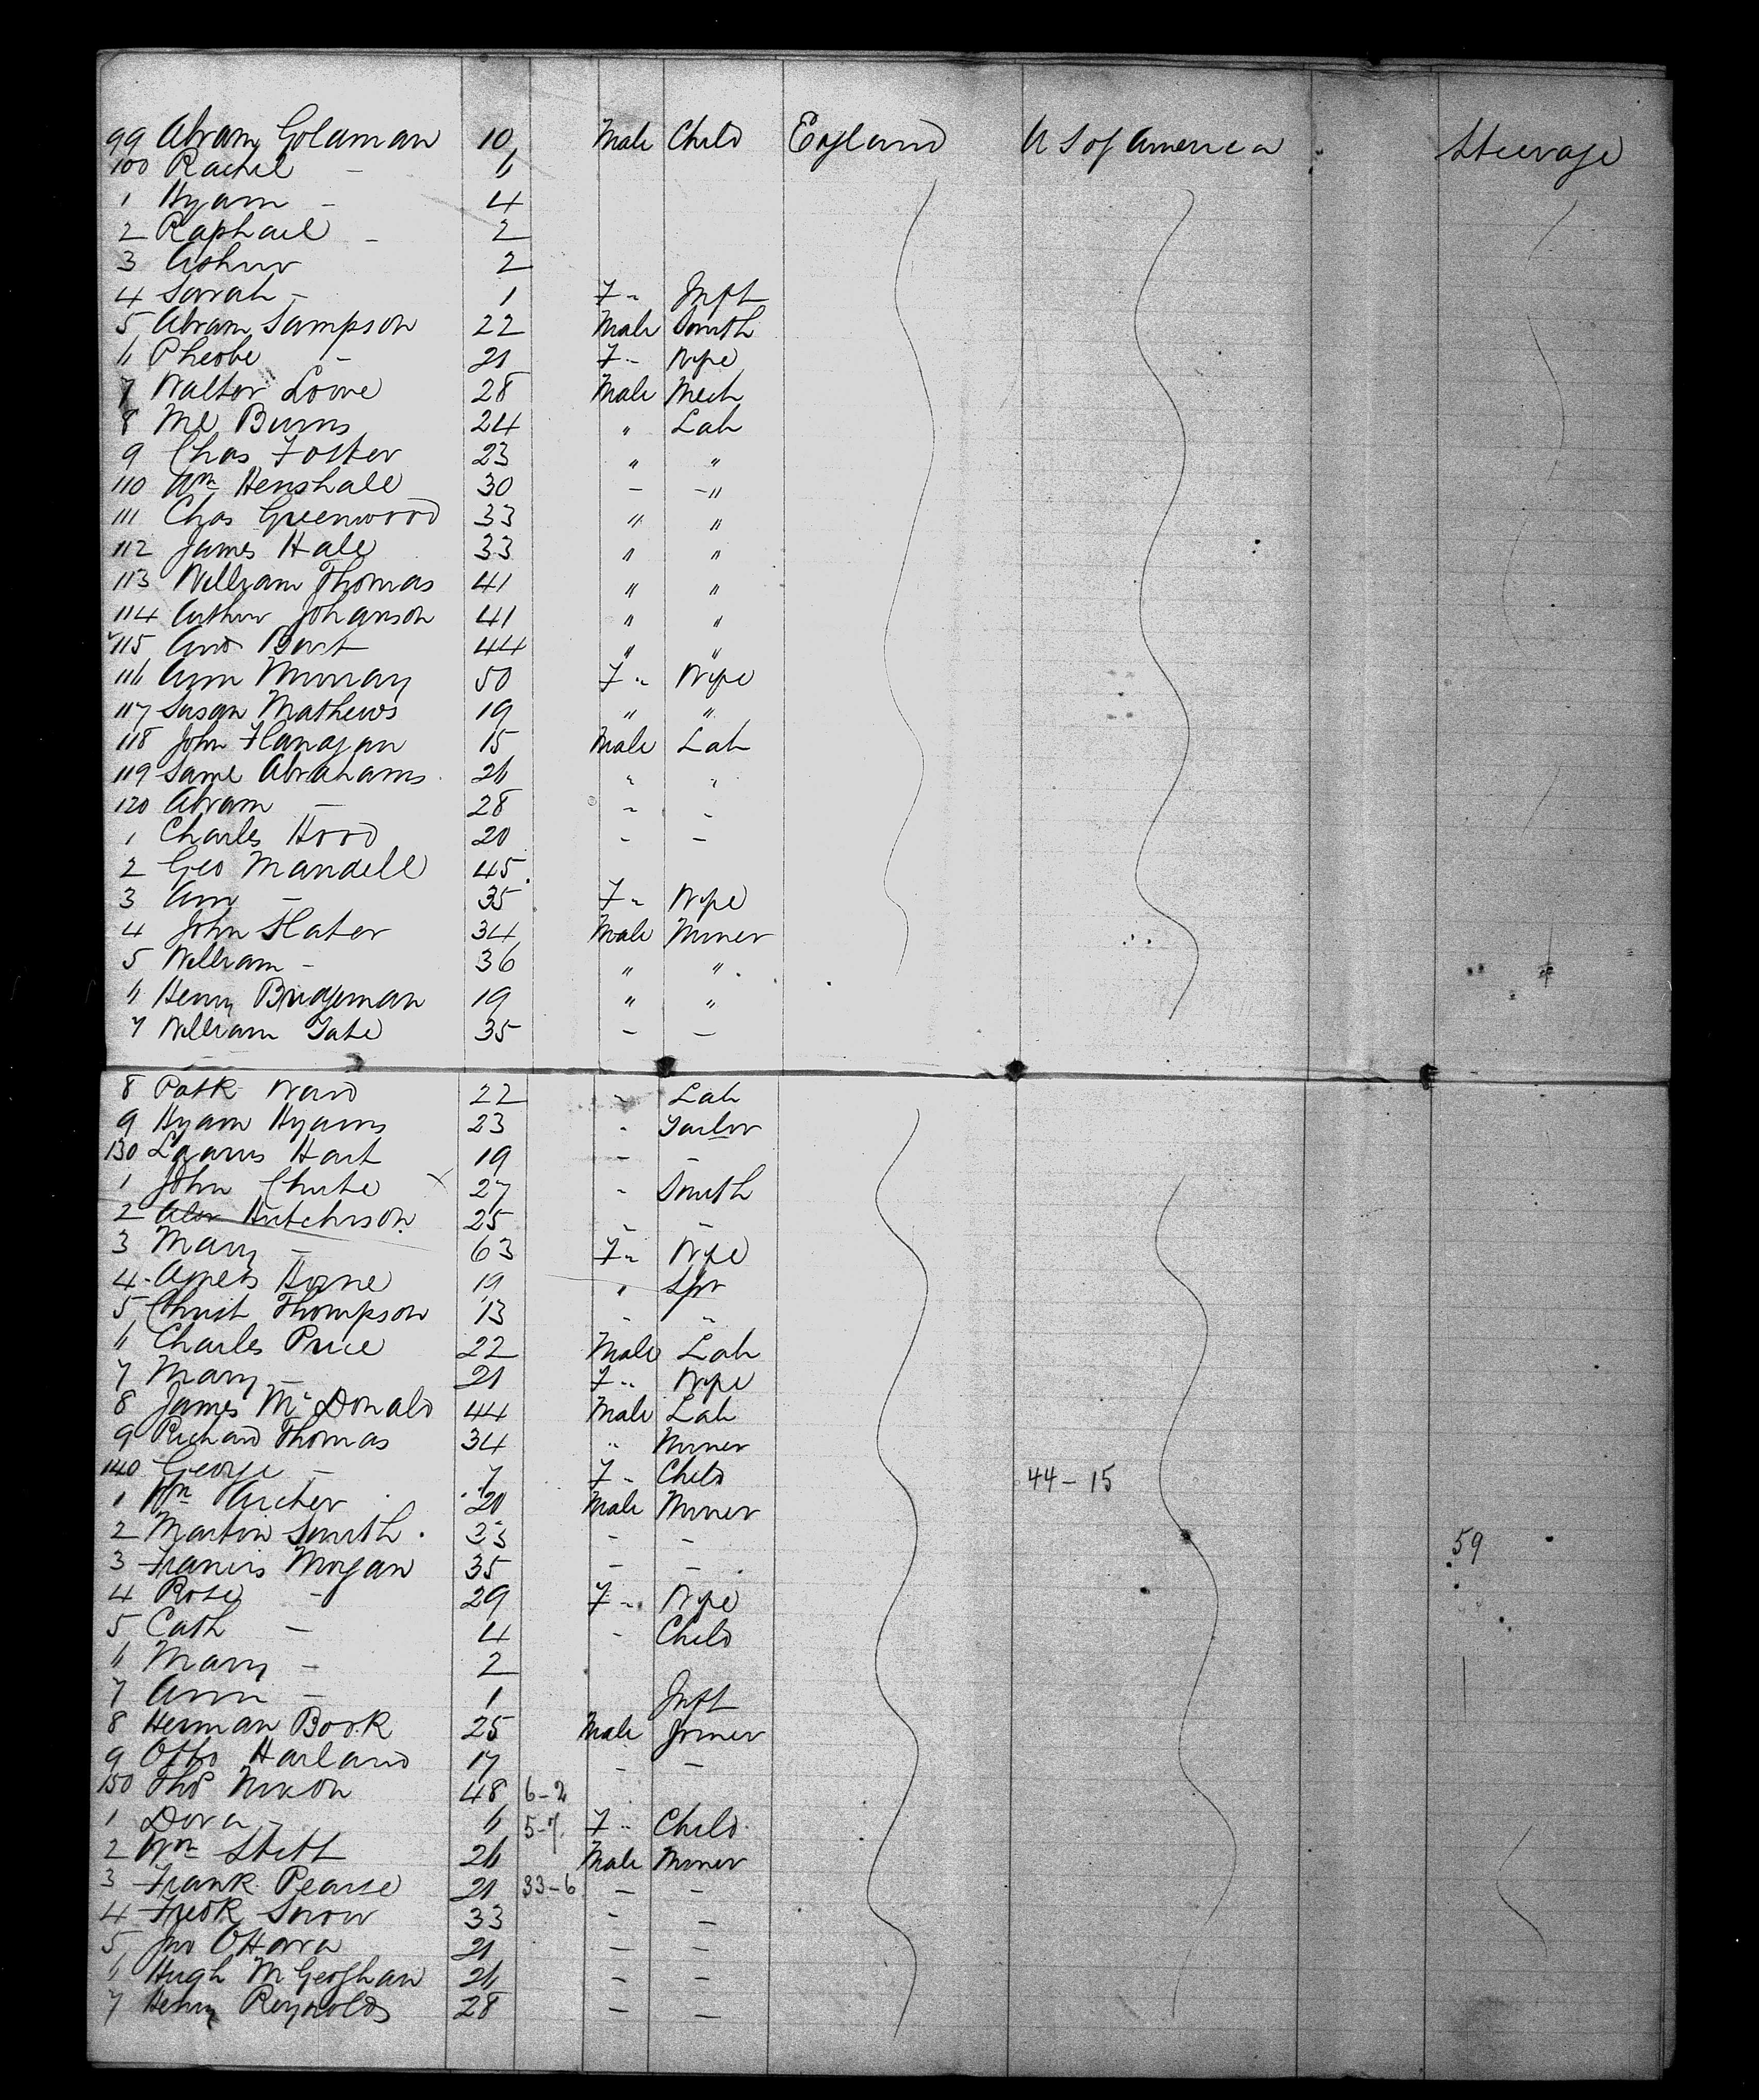 99 Abram Goldman 10 Male Child England U S of America Steerage
100 Rachel - 6
1 Hyam - 4
2 Raphael - 2
3 Ashur 2
4 Sarah - 1 F " Inft
5 Abram Sampson 22 Male Smith
6 Pheobe - 21 F " Wife
7 Walter Lowe 28 Male Mech
8 Ml Burns 24 " Lab
9 Chas Foster 23 " "
110 Wm Henshall 30 - - "
111 Chas Greenwood 33 " "
112 James Hall 33 " "
113 William Thomas 41 " "
114 Arthur Johanson 41 " "
115 And Bart 44 " "
116 Ann Murray 50 F " Wife
117 Susan Mathews 19 " "
118 John Flanagan 15 Male Lab
119 Saml Abrahams 26 " "
120 Abram - 28 " "
1 Charles Hood 20 - -
2 Geo Mandell 45
3 Ann - 35 F " Wife
4 John Slater 34 Male Miner
5 William - 36 " "
6 Henry Bridgeman 19 " "
7 William Tate 35 - -
8 Patk Ward 22 " Lab
9 Hyam Hyams 23 " Tailor
130 Lazarus Hart 19 - -
1 John Chute x 27 " Smith
2 Alex Hutchison 25 - -
3 Mary - 63 F " Wife
4 Agnes Horne 19 " Spr
5 Christ Thompson 13 " "
6 Charles Price 22 Male Lab
7 Mary - 21 F " Wife
8 James McDonald 44 Male Lab
9 Richard Thomas 34 " Miner
140 George - 7 F " Child 44-15
1 Wm Archer 20 Male Miner
2 Martin Smith 33 - - 59
3 Francis Morgan 35 - -
4 Rose - 29 F " Wife
5 Cath - 4 " Child
6 Mary - 2
7 Ann - 1 Inft
8 Herman Book 25 Male Joiner
9 Otto Harland 17 - -
150 Thos Nixon 48 6-2
1 Dora - 6 5-7 F " Child
2 Wm Stitt 26 Male Miner
3 Frank Pearse 21 33-6 - -
4 Fredk Snow 33 - -
5 Jno OHara 21 - -
6 Hugh McGeoghan 26 - -
7 Henry Reynolds 28 - -